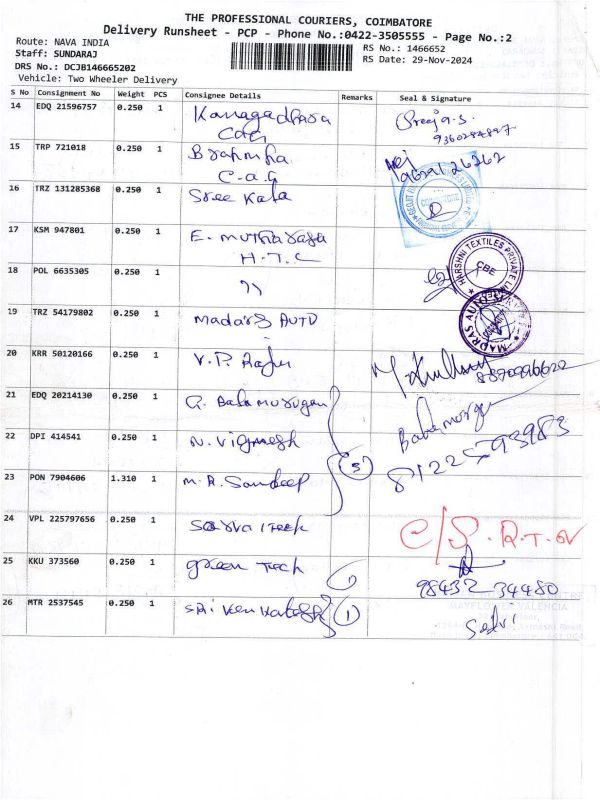 THE PROFESSIONAL COURIERS, COIMBATORE
Delivery Runsheet - PCP - Phone No.:0422-3505555 - Page No.:2
Route: NAVA INDIA
Staff: SUNDARAJ
RS No.: 1466652
DRS No.: DCJB146665202
RS Date: 29-Nov-2024
Vehicle: Two Wheeler Delivery
S No Consignment No Weight PCS Consignee Details Remarks Seal & Signature
14 EDQ 21596757 0.250 1 Kanagadhara
15 TRP 721018 0.250 1 Brahmha
C-a-G
16 TRZ 131285368 0.250 1 Sree Kala
17 KSM 947801 0.250 1 E. Mutharasa
H.T.C
HARSHNI TEXTILES PRIVATE
CBE
18 POL 6635305 0.250 1 "
19 TRZ 54179802 0.250 1 Madars AUTO
MADRAS AU
20 KRR 50120166 0.250 1 V.P. Raju
21 EDQ 20214130 0.250 1 G. Balamurugan
Balamurga
22 DPI 414541 0.250 1 N. Vignesh
81225-93983
23 PON 7904606 1.310 1 M.R. Sandeep
3
24 VPL 225797656 0.250 1 Sarva ITech
C/S. R.T. ov
25 KKU 373560 0.250 1 green Tech
98432-34480
26 MTR 2537545 0.250 1 Sri Venkatesh 1
Selvi